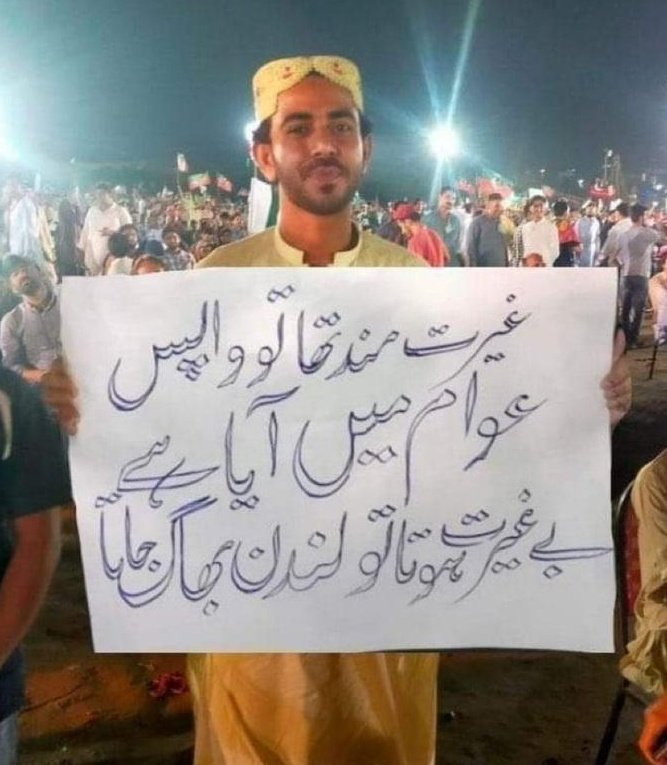 غیرت مند تھا تو واپس
عوام میں آیا ہے
بے غیرت ہوتا تو لندن بھاگ جاتا